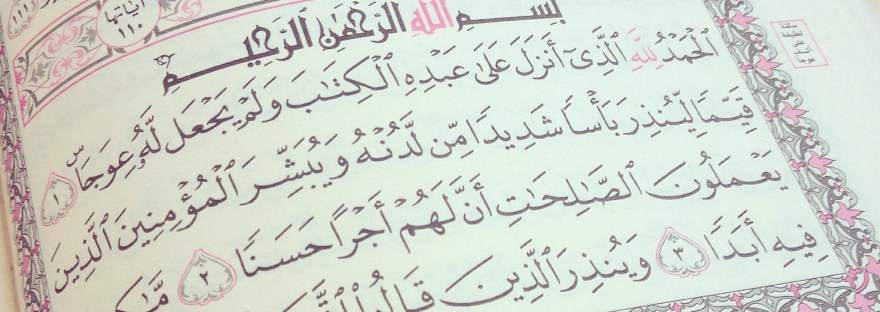 آياتها
١١٠
بِسۡمِ ٱللَّهِ ٱلرَّحۡمَٰنِ ٱلرَّحِيمِ
ٱلۡحَمۡدُ لِلَّهِ ٱلَّذِيٓ أَنزَلَ عَلَىٰ عَبۡدِهِ ٱلۡكِتَٰبَ وَلَمۡ يَجۡعَل لَّهُۥ عِوَجَاۜ ١
قَيِّمٗا لِّيُنذِرَ بَأۡسٗا شَدِيدٗا مِّن لَّدُنۡهُ وَيُبَشِّرَ ٱلۡمُؤۡمِنِينَ ٱلَّذِينَ
يَعۡمَلُونَ ٱلصَّٰلِحَٰتِ أَنَّ لَهُمۡ أَجۡرًا حَسَنٗا ٢
فِيهِ أَبَدٗا ٣ وَيُنذِرَ ٱلَّذِينَ
سكتة
لطيفة
على
عوجا